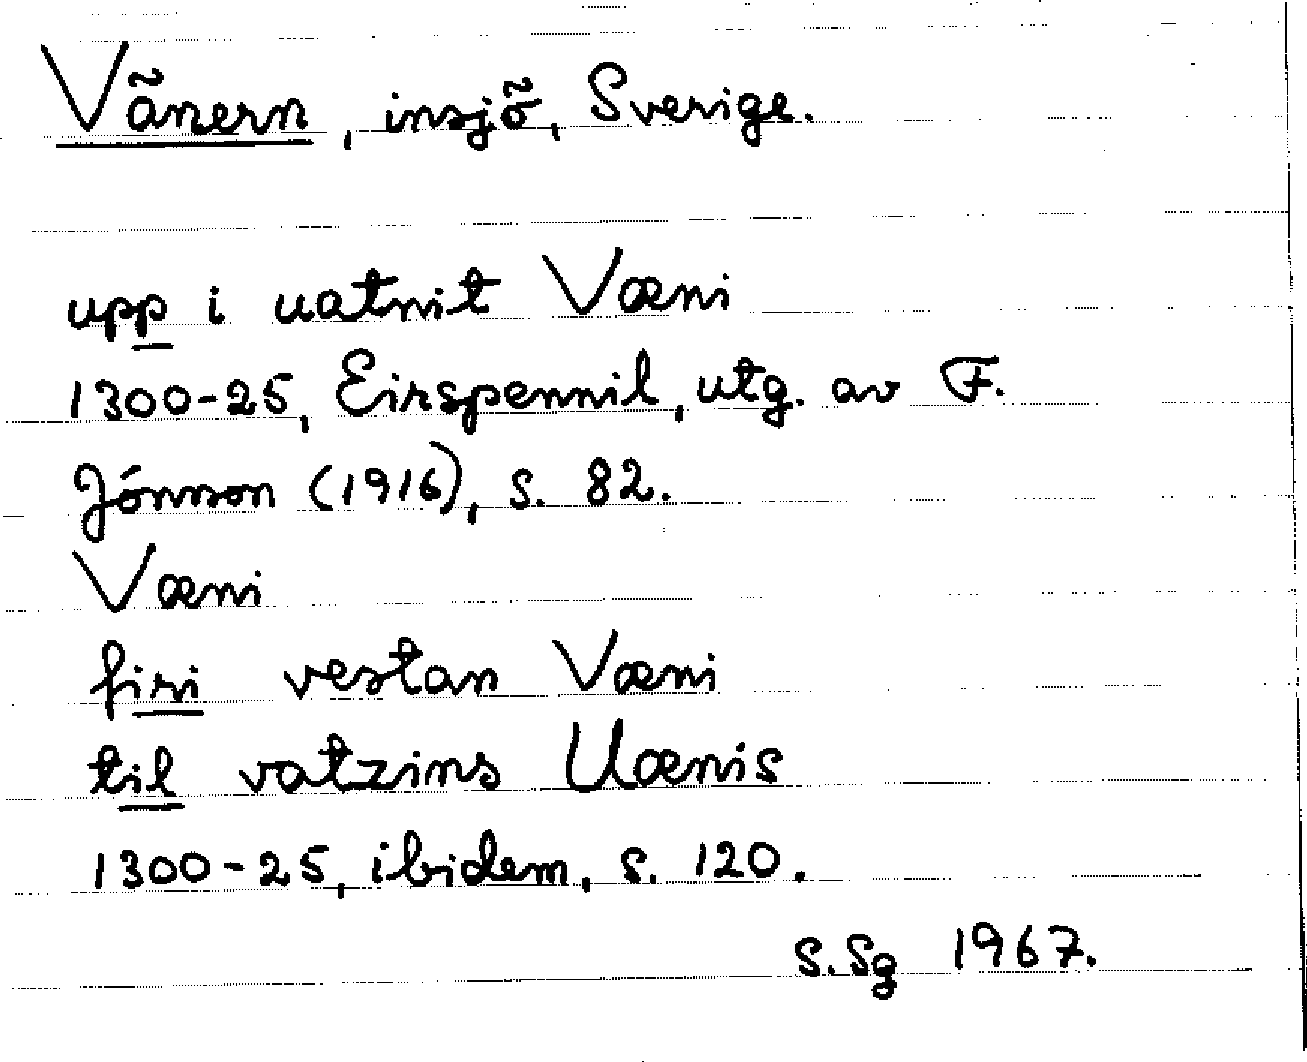 Vänern, insjö, Sverige.
upp i uatnit Væni
1300-25, Eirspennil, utg. av F.
Jónsson (1916), s. 82.
Væni
firi vestan Væni
til vatzins Uænis
1300-25, ibidem, s. 120.
S.Sg 1967.